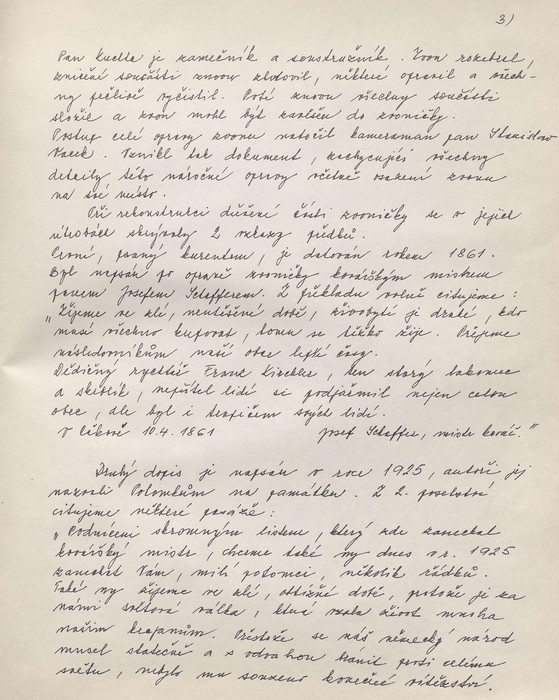 3)
Pan Kuchta je zámečník a soustružník. Zvon rozebral,
zničené součásti znovu zhotovil, některé opravil a všech-
ny pečlivě vyčistil. Poté znovu všechny součásti
složil a zvon mohl být zavěšen do zvoničky.
Postup celé opravy zvonu natočil kameraman pan Stanislav
Vacek. Vznikl tak dokument, zachycující všechny
detaily této náročné opravy včetně osazení zvonu
na své místo.
Při rekonstrukci dřevěné části zvoničky se v jejich
útrobách skrývaly 2 vzkazy předků.
První, psaný kurentem, je datován rokem 1861.
Byl napsán po opravě zvoničky kovářským mistrem
panem Josefem Schafferem. Z překladu volně citujeme:
„Žijeme ve zlé, neutěšené době, živobytí je drahé, kdo
musí všechno kupovat, tomu se těžko žije. Přejeme
následovníkům naší obce lepší časy.
Dědičný rychtář Franz Kischler, ten starý lakomec
a skrblík, nepřítel lidí si podjařmil nejen celou
obec, ale byl i trapičem svých lidí.
V 10.4.1861 Josef Schaffer, mistr kovář."
Druhý dopis je napsán v roce 1925, autoři jej
nazvali Potomkům na památku. Z 2. poselství
citujeme některé pasáže:
„Podníceni skromným listem, který zde zanechal
kovářský mistr, chceme také my dnes v r. 1925
zanechat Vám, milí potomci, několik řádků.
Také my žijeme ve zlé, obtížné době, protože je za
námi světová válka, která vzala život mnoha
našim krajanům. Přestože se náš německý národ
musel statečně a s odvahou bránit proti celému
světu, nebylo mu souzeno konečné vítězství.